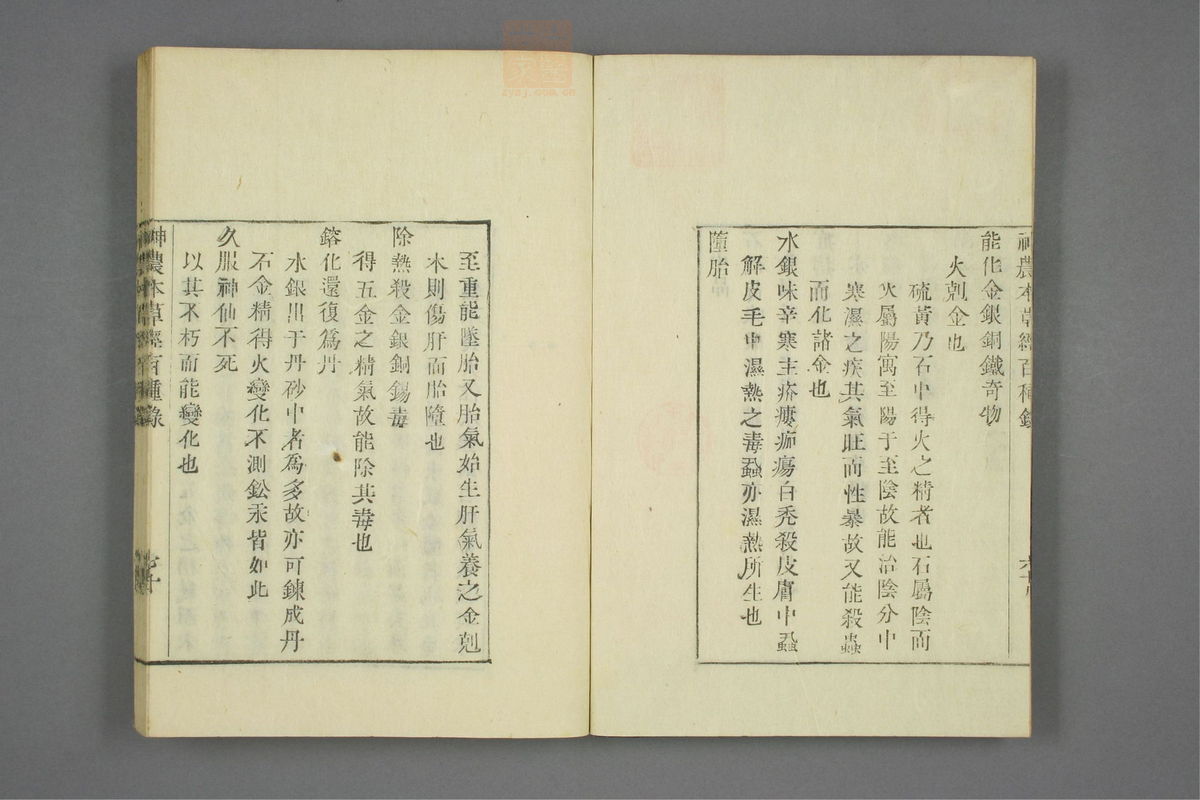 神農本草經百種錄
六十
能化金銀銅鐵奇物
火剋金也
硫黃乃石中得火之精者也石屬陰而
火屬陽寓至陽于至陰故能治陰分中
寒濕之疾其氣旺而性暴故又能殺蟲
而化諸金也
水銀味辛寒主疥瘻痂瘍白禿殺皮膚中蝨
解皮毛中濕熱之毒蝨亦濕熱所生也
墮胎
至重能墜胎又胎氣始生肝氣養之金剋
木則傷肝而胎墮也
除熱殺金銀銅錫毒
得五金之精氣故能除其毒也
鎔化還復為丹
水銀出于丹砂中者為多故亦可鍊成丹
不金精得火變化不測鈆汞皆如此
久服神仙不死
以其不朽而能變化也
神農本草經百種錄
七十
zysj.com.cn